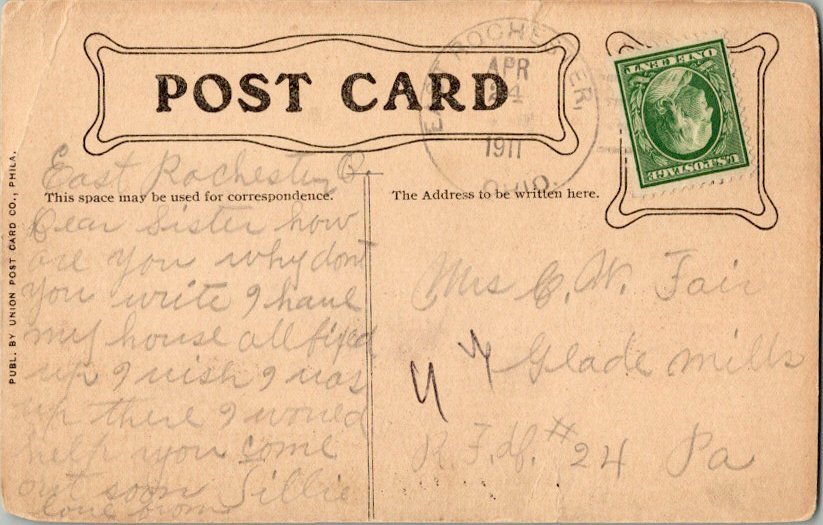 POST CARD
EAST ROCHESTER,
APR
24
1911
OHIO.
ONE CENT
U.S. POSTAGE
East Rochester, O.
This space may be used for correspondence.
The Address to be written here.
Dear Sister how
are you why dont
you write I have
my house all fixed
up I wish I was
up there I would
help you come
out soon Lillie
love from
Mrs C. W. Fair
Glade mills
R. F. d. # 24 Pa
PUBL. BY UNION POST CARD CO., PHILA.